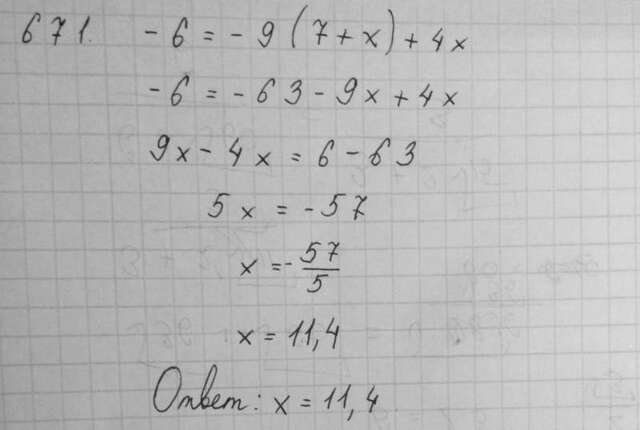 671. -6 = -9(7+x)+4x
-6 = -63-9x+4x
9x-4x = 6-63
5x = -57
x = -57/5
x = 11,4
Ответ: x = 11,4